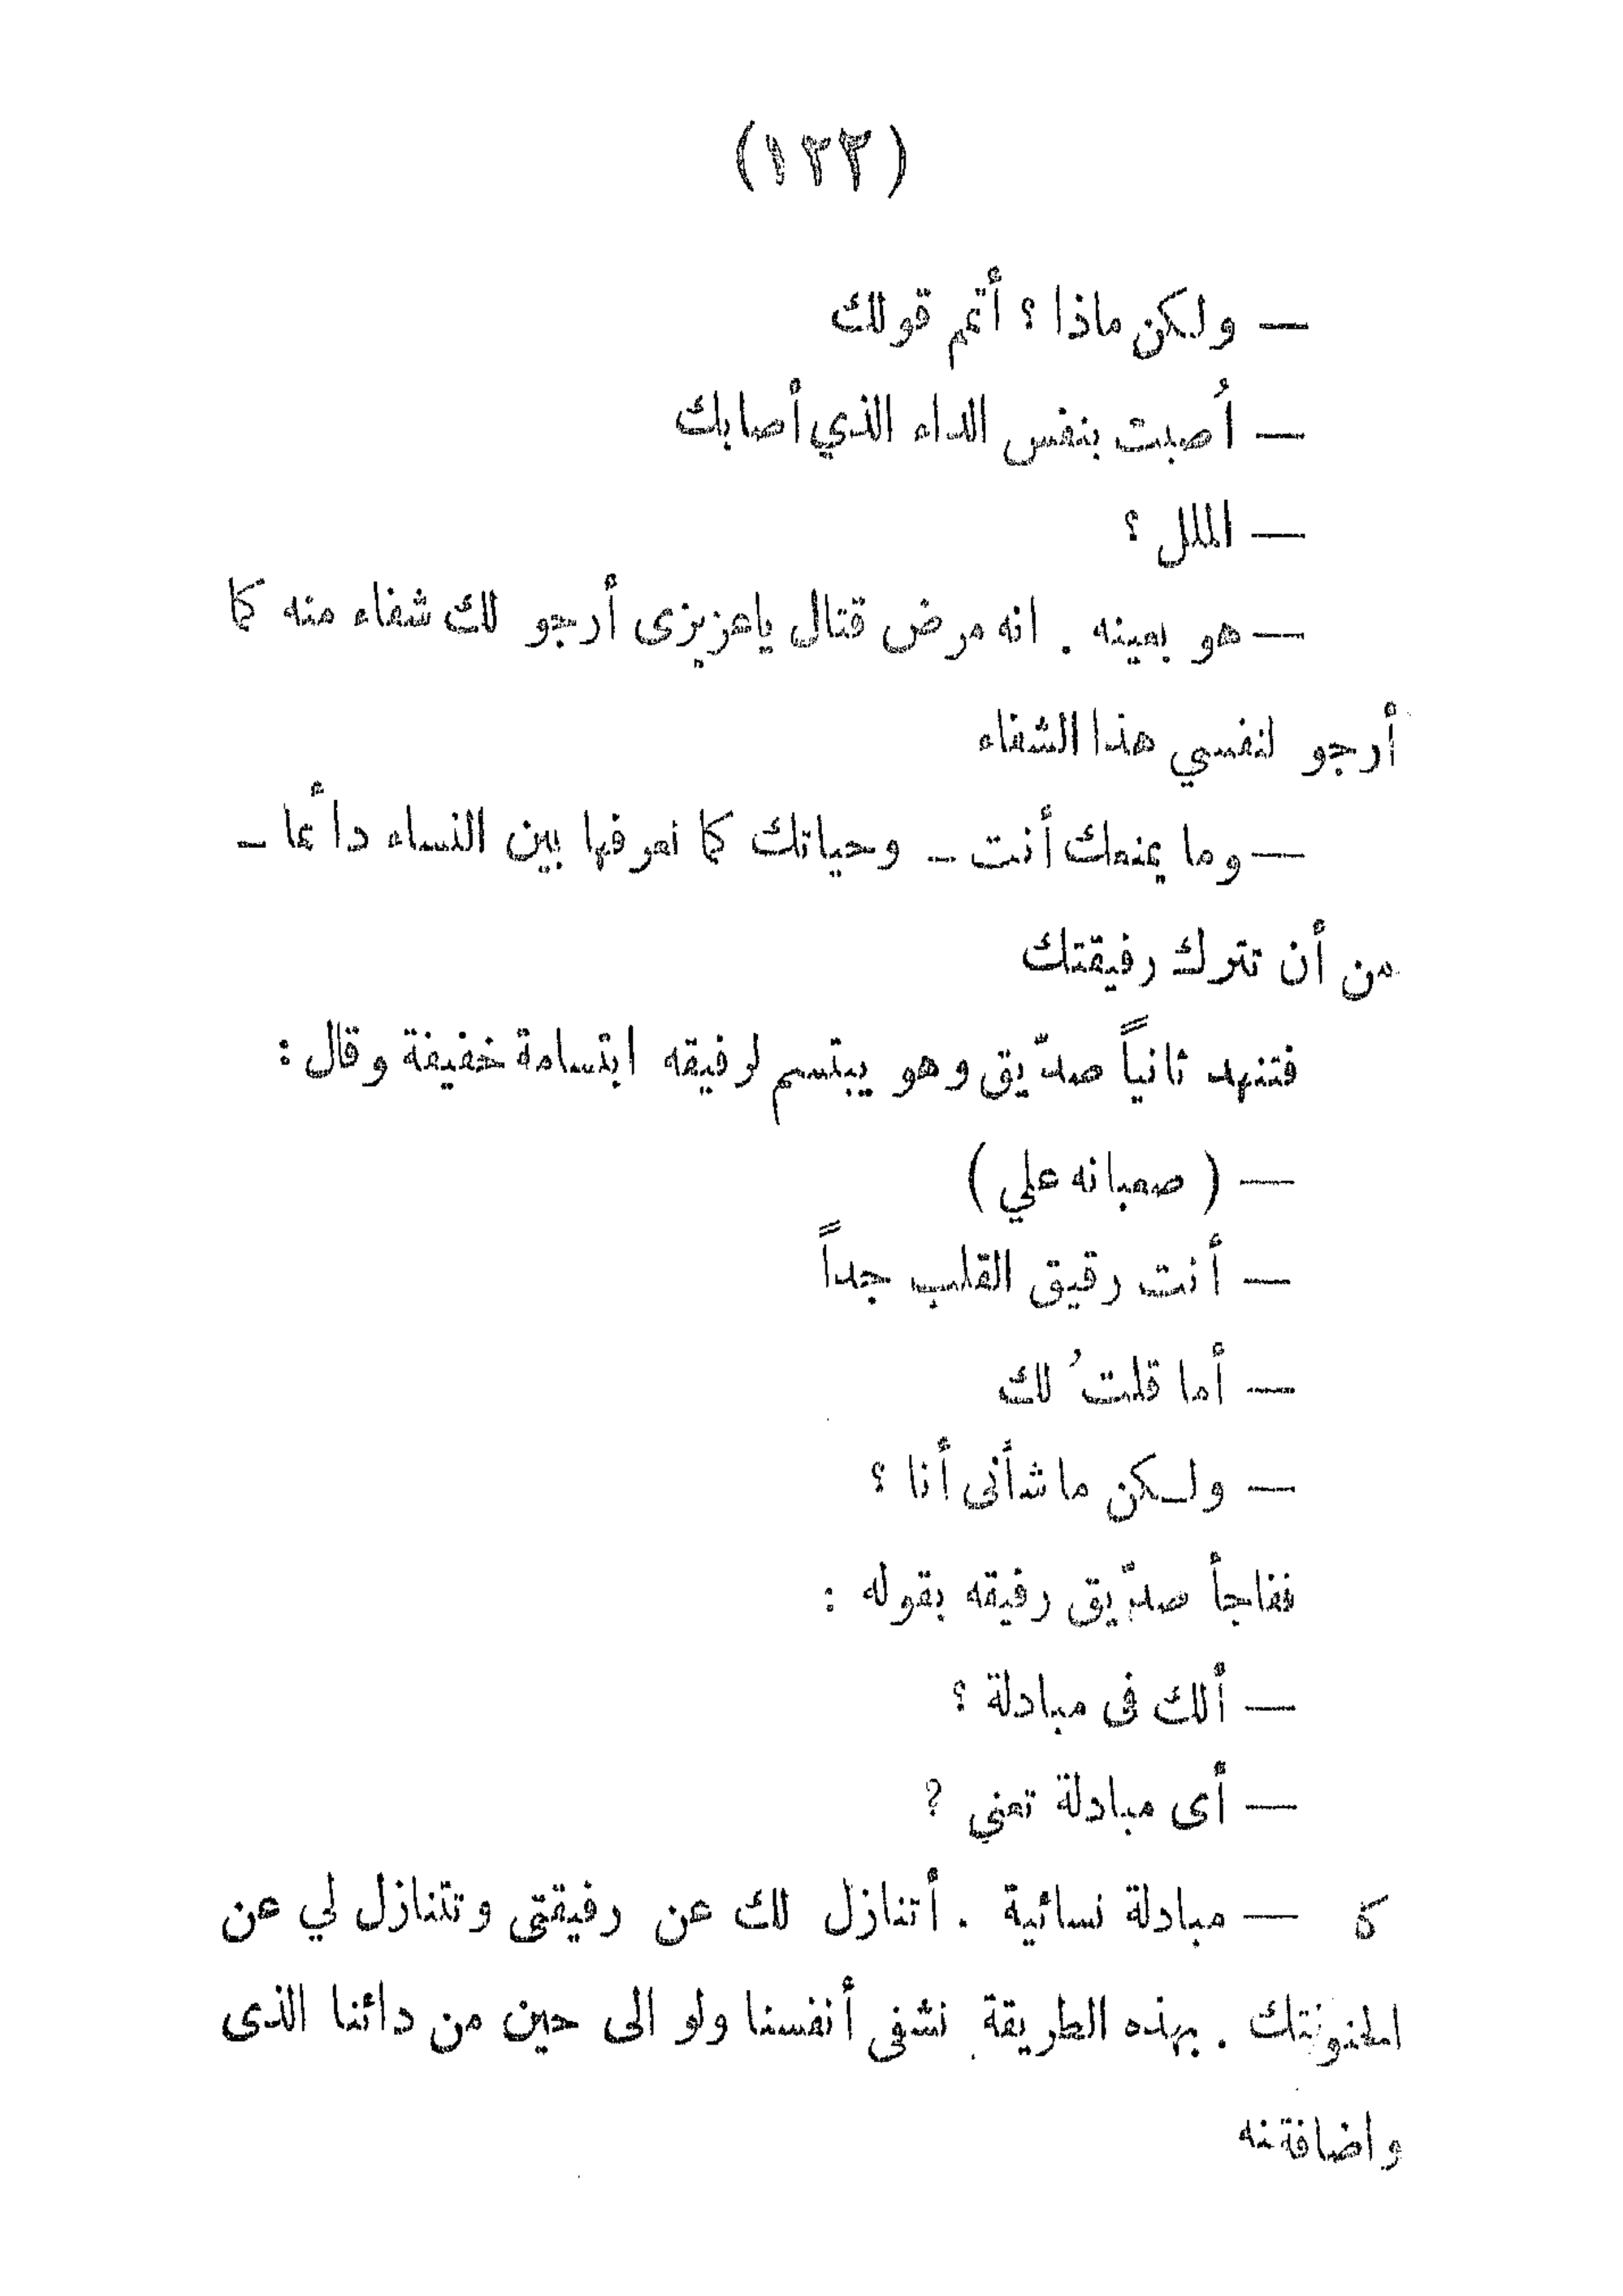 (١٢٣)
— ولكن ماذا ؟ أتمم قولك
— أُصبت بنفس الداء الذي أصابك
— الملل ؟
— هو بعينه . انه مرض قتال ياعزيزى أرجو لك شفاء منه كما
أرجو لنفسي هذا الشفاء
— وما يمنعك أنت - وحياتك كما نعرفها بين النساء دائما -
من أن تترك رفيقتك
فتنهد ثانياً صدّيق وهو يبتسم لرفيقه ابتسامة خفيفة وقال :
— ( صعبانه علي )
— أنت رقيق القلب جداً
— أما قلتُ لك
— ولكن ما شأنى أنا ؟
ففاجأ صدّيق رفيقه بقوله :
— ألك فى مبادلة ؟
— أى مبادلة تعني ?
— مبادلة نسائية . أتنازل لك عن رفيقتى وتتنازل لي عن
. بهذه الطريقة نشفى أنفسنا ولو الى حين من دائنا الذى